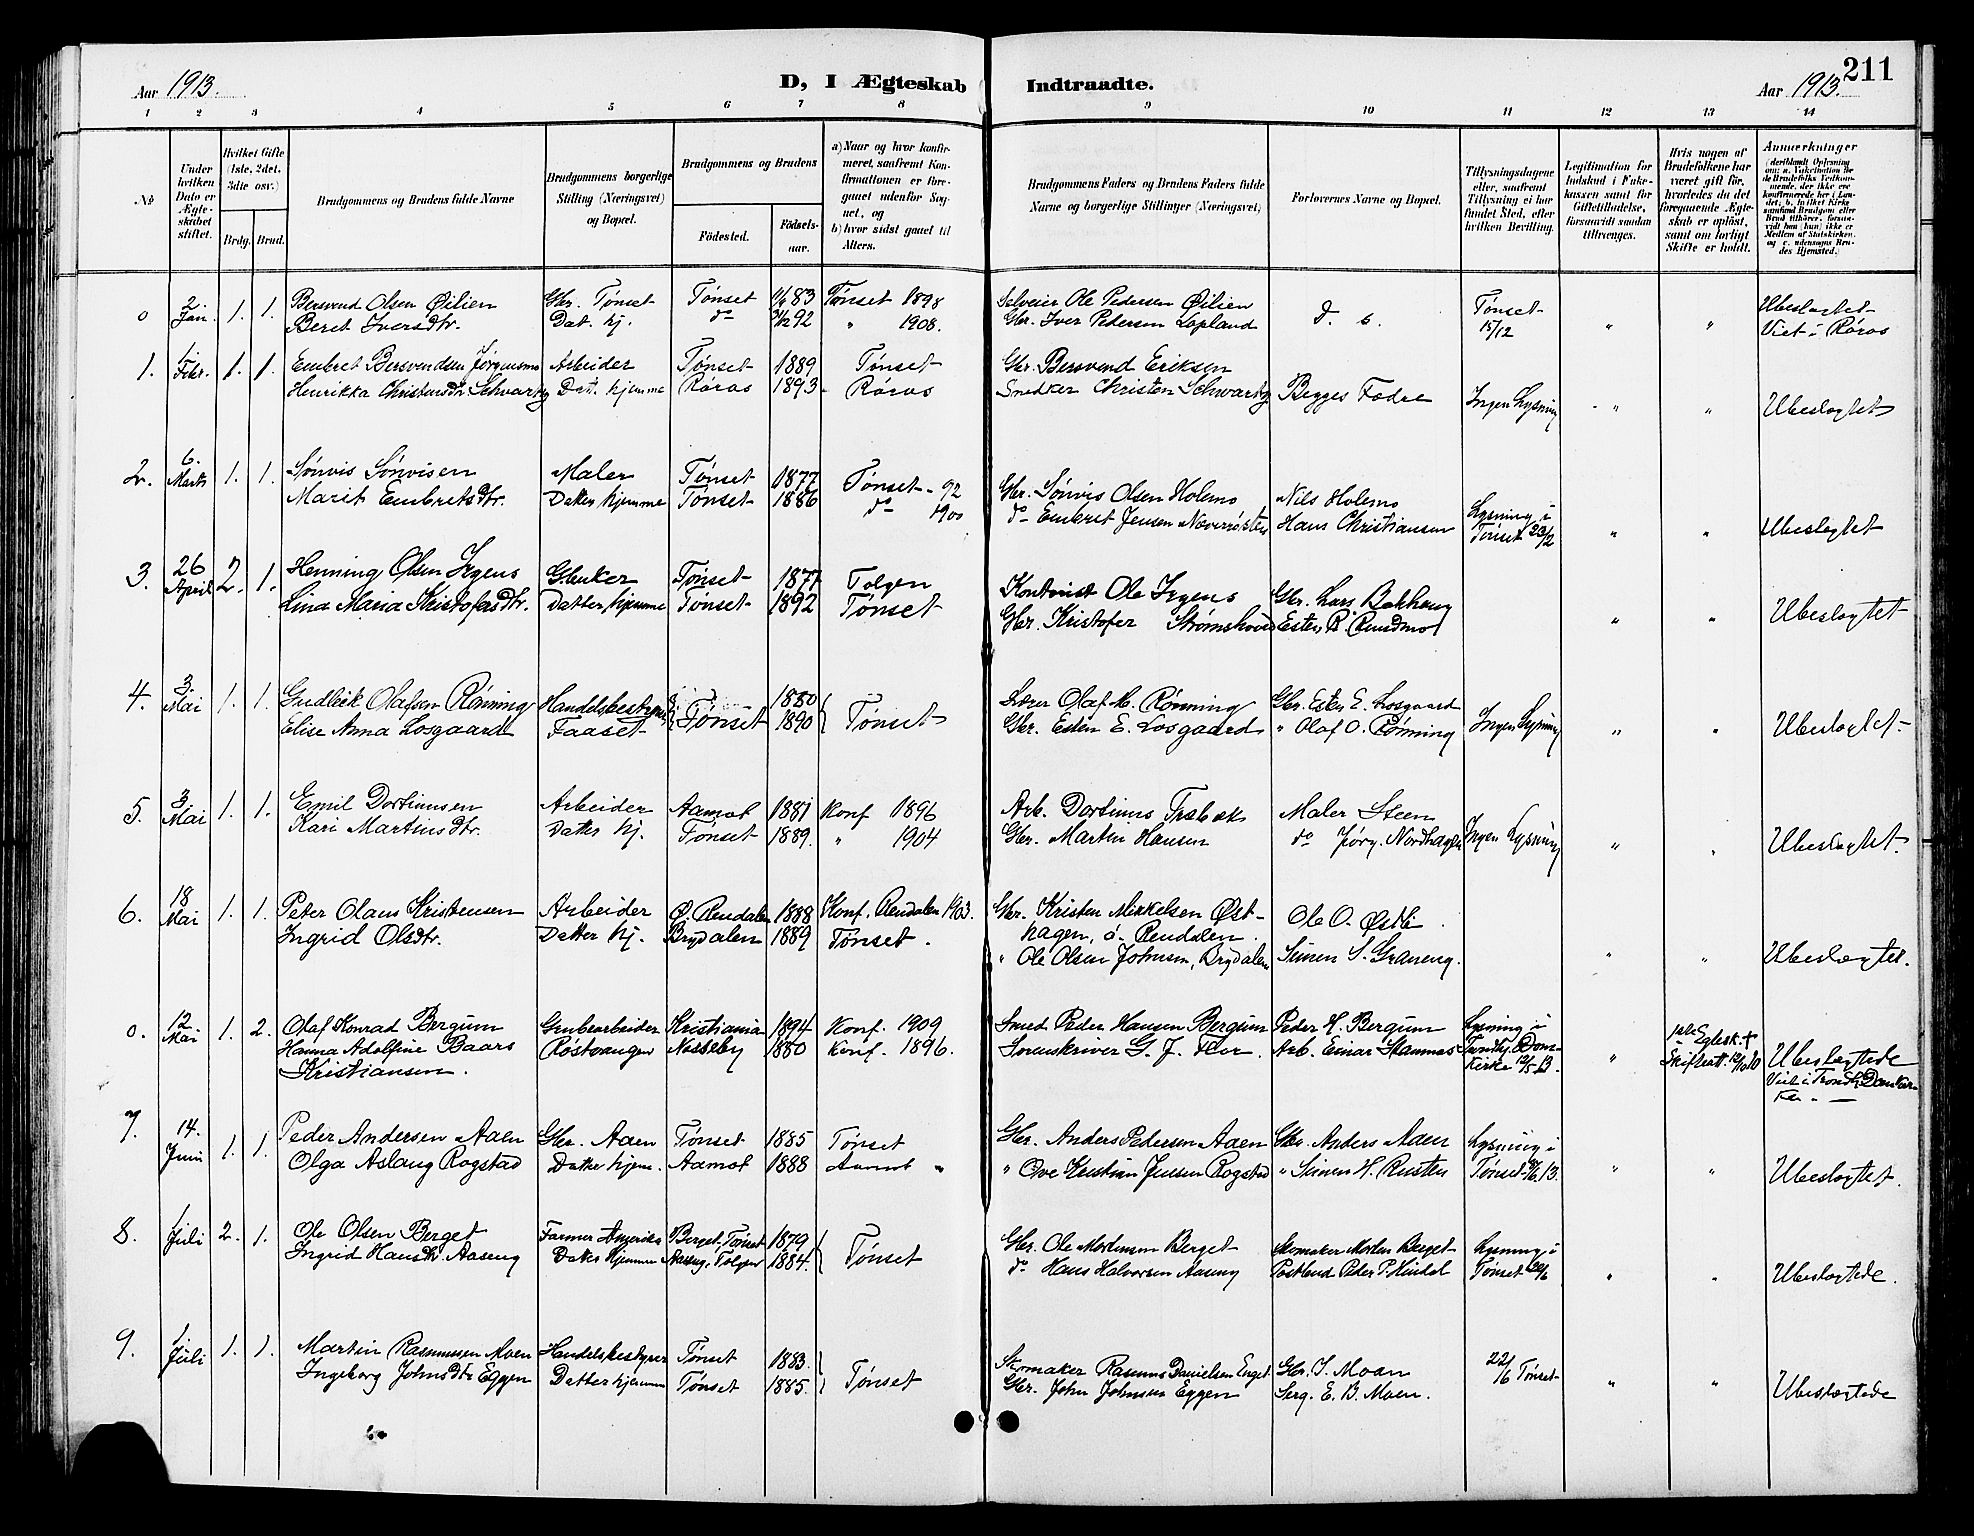 211
Aar 1913.
D, I Ægteskab Indtraadte.
Aar 1913.
1 2 3 4 5 6 7 8 9 10 11 12 13 14
No
Under hvilken Dato er Ægteskabet stiftet.
Hvilket Gifte (1ste, 2det, 3die osv.)
Brdg. Brud.
Brudgommens og Brudens fulde Navne
Brudgommens borgerlige Stilling (Næringsvei) og Bopæl.
Brudgommens og Brudens
Fødested.
Fødselsaar.
a) Naar og hvor konfirmeret, saafremt Konfirmationen er foregaaet udenfor Sognet, og
b) hvor sidst gaaet til Alters.
Brudgommens Faders og Brudens Faders fulde Navne og borgerlige Stillinger (Næringsvei)
Forlovernes Navne og Bopæl.
Tillysningsdagene eller, saafremt Tillysning ei har fundet Sted, efter hvilken Bevilling.
Legitimation for Indskud i Enkekassen samt for Giftetilladelse, forsaavidt saadan tiltrænges.
Hvis nogen af Brudefolkene har været gift før, hvorledes da det foregaaende Ægteskab er opløst, samt om lovligt Skifte er holdt.
Anmærkninger
0 2 Jan. 1. 1. Bersvend Olsen Øilien Gbr. Tønset Tønset 83 Tønset 1898 Selveier Ole Pedersen Øilien d. b. Tønset 15/12 " " Ubeslægtet
Beret Iversdtr. Dat. hj. do 92 " 1908. Gbr. Iver Pedersen Lapland Viet i Røros
1. 1 Febr. 1. 1. Embret Bersvendsen Jørgensmo Arbeider Tønset 1889 Tønset Gbr. Bersvend Eriksen
Henrikka Christensdtr Schvartz Dat. hjemme Røros 1893 Røros Snedker Christen Schwartz Begges Fædre Ingen Lysning " " Ubeslægtet
2. 6. Marts 1. 1. Sønvis Sønvisen Maler Tønset 1877 Tønset - 92 Gbr. Sønvis Olsen Holemo Nils Holemo Lysning i
Marit Embretsdtr. Datter hjemme Tønset 1886 do 1900 do Embret Jensen Hans Christiansen Tønset 23/2 " " Ubeslægtet
3. 26 April 2. 1. Henning Olsen Irgens Gbruker Tønset 1877 Tolgen Kontorist Ole Irgens Gbr. Lars Bakhaug
Lina Maria Kristofersdtr. Datter hjemme Tønset 1892 Tønset Gbr. Kristofer Strømshoved Esten R. " " Ubeslægtet
4. 3 Mai 1. 1. Gudleik Olafsen Rønning Handelsbestyrer 1880 Lærer Olaf M. Rønning Gbr. Esten E. Losgaard
Elise Anna Losgaard Faaset Tønset 1890 Tønset Gbr. Esten E. Losgaard " Olaf O. Rønning Ingen Lysning " " Ubeslægtet
5. 3 Mai 1. 1. Emil Dortinusen Arbeider Aamot 1881 Konf 1896 Arb. Dortinus Træbæk Maler Steen
Kari Martinsdtr. Datter hj. Tønset 1889. " 1904 Gbr. Martin Hansen do Jørg. Nordhagen Ingen Lysning " " Ubeslægtet.
6. 18 Mai 1. 1. Peter Olaus Kristensen Arbeider Ø. Rendalen 1888 Konf. Rendalen 1903. Gbr. Kristen Mikkelsen Østhagen, ø. Rendalen. Ole O. Østli
Ingrid Olsdtr. Datter hj. Brydalen 1889 Tønset. " Ole Olsen Johnsen, Brydalen Simen S. Graneng. " " Ubeslægtet.
0. 12 Mai 1. 2. Olaf Konrad Bergum Grubearbeider Kristiania 1894 Konf. 1909 Smed Peder Hansen Bergum Peder H. Bergum Lysning i
Hanna Adolfine Baars Røstvangen Nesseby 1880 Konf. 1896. Sorenskriver G. J. Flor Arb. Einar Stamnes Trondhj. Domkirke 12/5 13. " Ubeslægtede
Kristiansen.
7. 14. Juni 1. 1. Peder Andersen Aaen Gbr. Aaen Tønset 1885 Tønset Gbr. Anders Pedersen Aaen Gbr. Anders Aaen Lysning i
Olga Aslaug Rogstad Datter hjem. Aamot 1888 Aamot " " Ove Kristian Jensen Rogstad " Simen H. Rusten Tønset /6 13. " " Ubeslægtet.
8. 1 Juli 2. 1. Ole Olsen Berget Farmer Amerika Berget, Tønset 1879 Gbr. Ole Mortensen Berget Skomaker Morten Berget Lysning i
Ingrid Hansdtr. Aaseng Datter hjemme Aaseng, Tolgen 1884. Tønset do Hans Halvorsen Aaseng Postbud Peder P. Hindal Tønset /6 " " Ubeslægtede.
9. 1 Juli 1. 1. Martin Rasmussen Moen Handelsbestyrer Tønset 1883. Skomaker Rasmus Danielsen Enget Gbr. J. Moan 22/6 Tønset
Ingeborg Johnsdtr Eggen Datter hjemme Tønset 1885. Tønset Gbr. John Johnsen Eggen Serg. E. B. Moen. " " Ubeslægtede